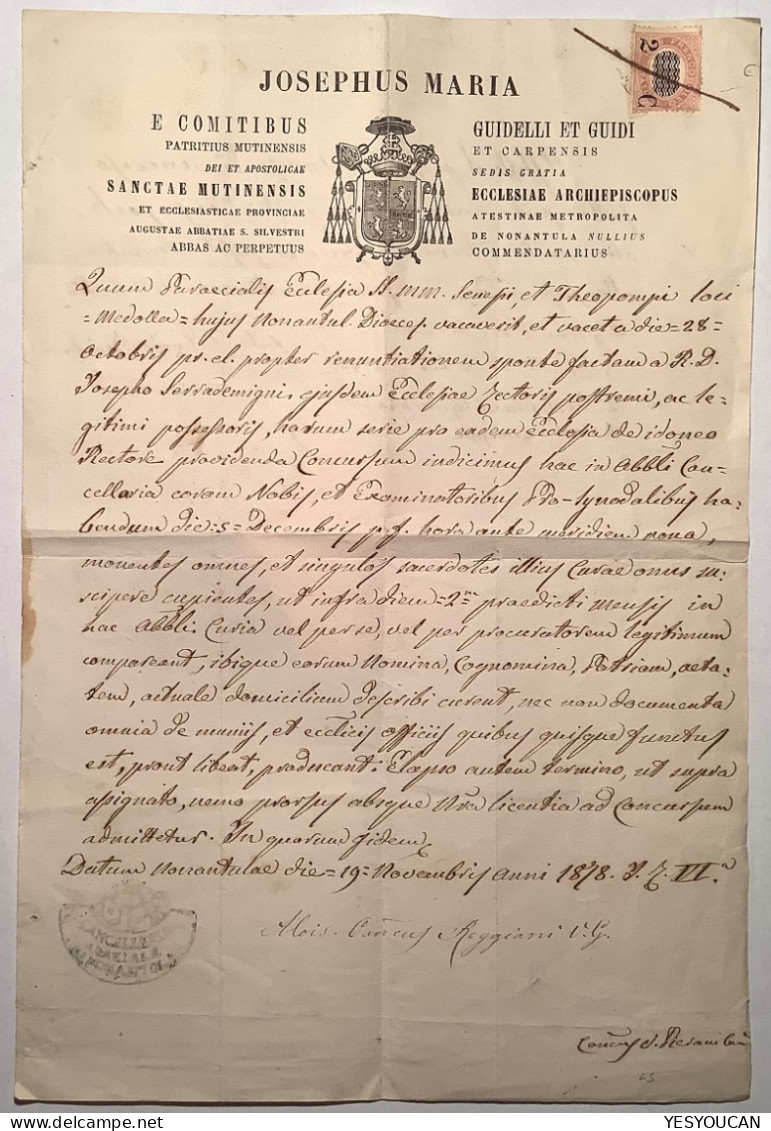 2 C
JOSEPHUS MARIA
E COMITIBUS GUIDELLI ET GUIDI
PATRITIUS MUTINENSIS ET CARPENSIS
DEI ET APOSTOLICAE SEDIS GRATIA
SANCTAE MUTINENSIS ECCLESIAE ARCHIEPISCOPUS
ET ECCLESIASTICAE PROVINCIAE ATESTINAE METROPOLITA
AUGUSTAE ABBATIAE S. SILVESTRI DE NONANTULA NULLIUS
ABBAS AC PERPETUUS COMMENDATARIUS
Quum Paraecialis Ecclesia SS. MM. Senesii et Theopompi loci
=Medolla= hujus Nonantul. Dioeces. vacaverit, et vacet a die =28=
Octobris pr. el. propter renuntiationem sponte factam a R. D.
Josepho Serrademigni, ejusdem Ecclesiae Rectoris postremi, ac le-
gitimi possessoris, harum serie pro eadem Ecclesia de idoneo
Rectore providenda Concursum indicimus hac in Abbli Can-
cellaria coram Nobis, et Examinatoribus Pro-Synodalibus ha-
bendum die =5= Decembris p. f. hora ante meridiem nona,
monentes omnes, et singulos sacerdotes illius Curae onus su-
scipere cupientes, ut infra diem =2m praedicti mensis in
hac Abbli. Curia vel per se, vel per procuratorem legitimum
compareant, ibique eorum Nomina, Cognomina, Patriam, aeta-
tem, actuale domicilium describi curent, nec non documenta
omnia de muniis, et ecclicis officiis quibus quisque functus
est, prout libeat, producant: Elapso autem termino, ut supra
assignato, nemo prorsus absque Nra licentia ad Concursum
admittetur. In quorum fidem
Datum Nonantulae die =19= Novembris anni 1878. I. Z. VI.a
Alois. Can̄cus Reggiani V. G.
CANCELLERIA
ABBAZIALE
DI NONANTOLA
LS
YESYOUCAN